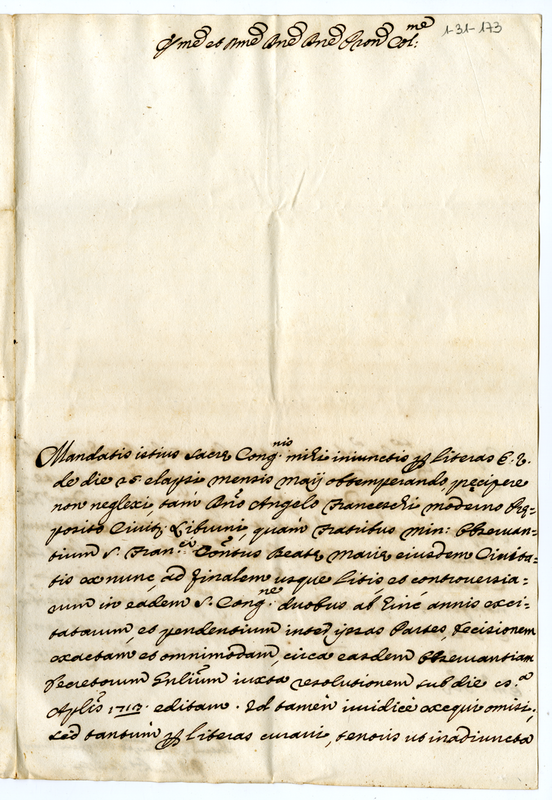 1-31-173
Mandatis istius Sacrę Congnis mihi iniunctis p literas E: V.
de die 26 elapsi mensis Maij obtemperando, pręcipere
non neglexi, tam Dno Angelo Franceschi moderno Prę=
posito Civitis Liburni, quàm Fratribus Min: Observan=
tium S. Franci Contus Beatę Marię eiusdem Civita=
tis ex nunc, ad finalem usque litis et controversia=
rum in eadem S. Congne duobus ab hinc annis exci=
tatarum, et pendentium inter ipsas Partes, decisionem
exactam, et omnimodam, circa easdem Observantiam
Decretorum iuxta resolutionem sub die
Aplis 1713. editam. Id tamen iuridicè exequi omisi;
sed tantum p literas curavi, tenoris ut in adiuncta